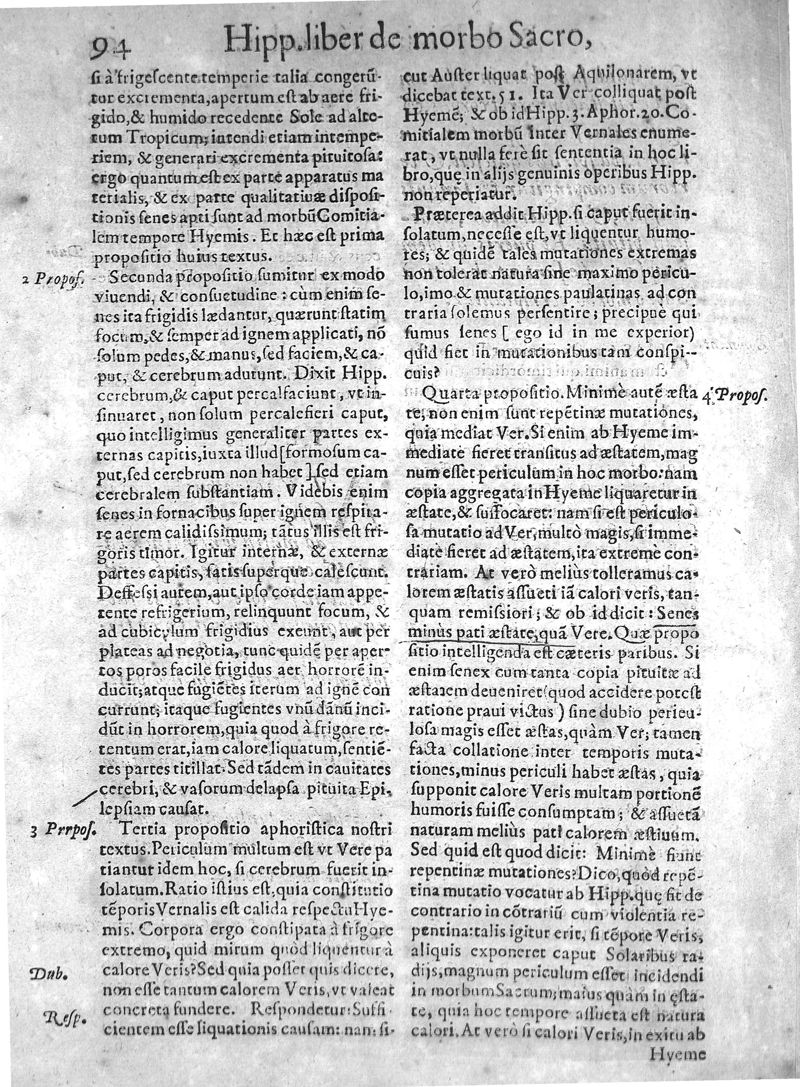 94
Hipp. liber de morbo Sacro,
si à frigescente temperie talia congerũ-
tur excrementa, apertum est ab aere fri-
gido, & humido recedente Sole ad alte-
rum Tropicum; intendi etiam intempe-
riem, & generari excrementa pituitosa:
ergo quantum est ex parte apparatus ma
terialis, & ex parte qualitatiuæ disposi-
tionis senes apti sunt ad morbũ Comitia-
lem tempore Hyemis. Et hæc est prima
propositio huius textus.
2 Propos.
Secunda propositio sumitur ex modo
viuendi, & consuetudine: cùm enim se-
nes ita frigidis lædantur, quærunt statim
focum, & semper ad ignem applicati, nõ
solum pedes, & manus, sed faciem, & ca-
put, & cerebrum adurunt. Dixit Hipp.
cerebrum, & caput percalfaciunt, vt in-
sinuaret, non solum percalefieri caput,
quo intelligimus generaliter partes ex-
ternas capitis, iuxta illud [formosum ca-
put, sed cerebrum non habet] sed etiam
cerebralem substantiam. Videbis enim
senes in fornacibus super ignem respira-
re aerem calidissimum; tãtus illis est fri-
goris timor. Igitur internæ, & externæ
partes capitis, satis superque calescunt.
Deffessi autem, aut ipso corde iam appe-
tente refrigerium, relinquunt focum, &
ad cubiculum frigidius exeunt, aut per
plateas ad negotia, tunc quidẽ per aper-
tos poros facile frigidus aer horrorẽ in-
ducit; atque fugiẽtes iterum ad ignẽ con
currunt; itaque fugientes vnũ dãnũ inci-
dũt in horrorem, quia quod à frigore re-
tentum erat, iam calore liquatum, sentiẽ-
tes partes titillat. Sed tãdem in cauitates
cerebri, & vasorum delapsa pituita Epi-
lepsiam causat.
3 Prrpos.
Tertia propositio aphoristica nostri
textus. Periculum multum est vt Vere pa
tiantur idem hoc, si cerebrum fuerit in-
solatum. Ratio istius est, quia constitutio
tẽporis Vernalis est calida respectu Hye-
mis. Corpora ergo constipata à frigore
extremo, quid mirum quòd liquentur à
Dub.
calore Veris? Sed quia posset quis dicere,
non esse tantum calorem Veris, vt valeat
concreta fundere. Respondetur: Suffi-
Resp.
cientem esse liquationis causam: nam: si-
cut Auster liquat post Aquilonarem, vt
dicebat text. 51. Ita Ver colliquat post
Hyemẽ; & ob id Hipp. 3. Aphor. 20. Co-
mitialem morbũ inter Vernales enume-
rat, vt nulla ferè sit sententia in hoc li-
bro, quę in alijs genuinis operibus Hipp.
non reperiatur.
Præterea addit Hipp. si caput fuerit in-
solatum, necesse est, vt liquentur humo-
res; & quidẽ tales mutationes extremas
non tolerat natura sine maximo pericu-
lo, imo & mutationes paulatinas ad con
traria solemus persentire; precipuè qui
sumus senes [ ego id in me experior)
quid fiet in mutationibus tam conspi-
cuis?
Quarta propositio. Minimè autẽ æsta
4 Propos.
te; non enim sunt repẽtinæ mutationes,
quia mediat Ver. Si enim ab Hyeme im-
mediate fieret transitus ad æstatem, mag
num esset periculum in hoc morbo: nam
copia aggregata in Hyeme liquaretur in
æstate, & suffocaret: nam si est periculo-
sa mutatio ad Ver, multò magis, si imme-
diate fieret ad æstatem, ita extremè con-
trariam. At verò melius tolleramus ca-
lorem æstatis assueti iã calori veris, tan-
quam remissiori; & ob id dicit: Senes
minus pati æstate, quã Vere. Quæ propo
sitio intelligenda est cæteris paribus. Si
enim senex cum tanta copia pituitæ ad
æstatem deueniret (quod accidere potest
ratione praui victus) sine dubio pericu-
losa magis esset æstas, quàm Ver; tamen
facta collatione inter temporis muta-
tiones, minus periculi habet æstas, quia
supponit calore Veris multam portionẽ
humoris fuisse consumptam; & assuetã
naturam meliùs pati calorem æstiuum.
Sed quid est quod dicit: Minimè fiunt
repentinæ mutationes? Dico, quòd repẽ-
tina mutatio vocatur ab Hipp. quę fit de
contrario in cõtrariũ cum violentia re-
pentina: talis igitur erit, si tẽpore Veris,
aliquis exponeret caput Solaribus ra-
dijs, magnum periculum esset incidendi
in morbum Sacrum; maius quàm in ęsta-
te, quia hoc tempore assueta est natura
calori. At verò si calori Veris, in exitu ab
Hyeme